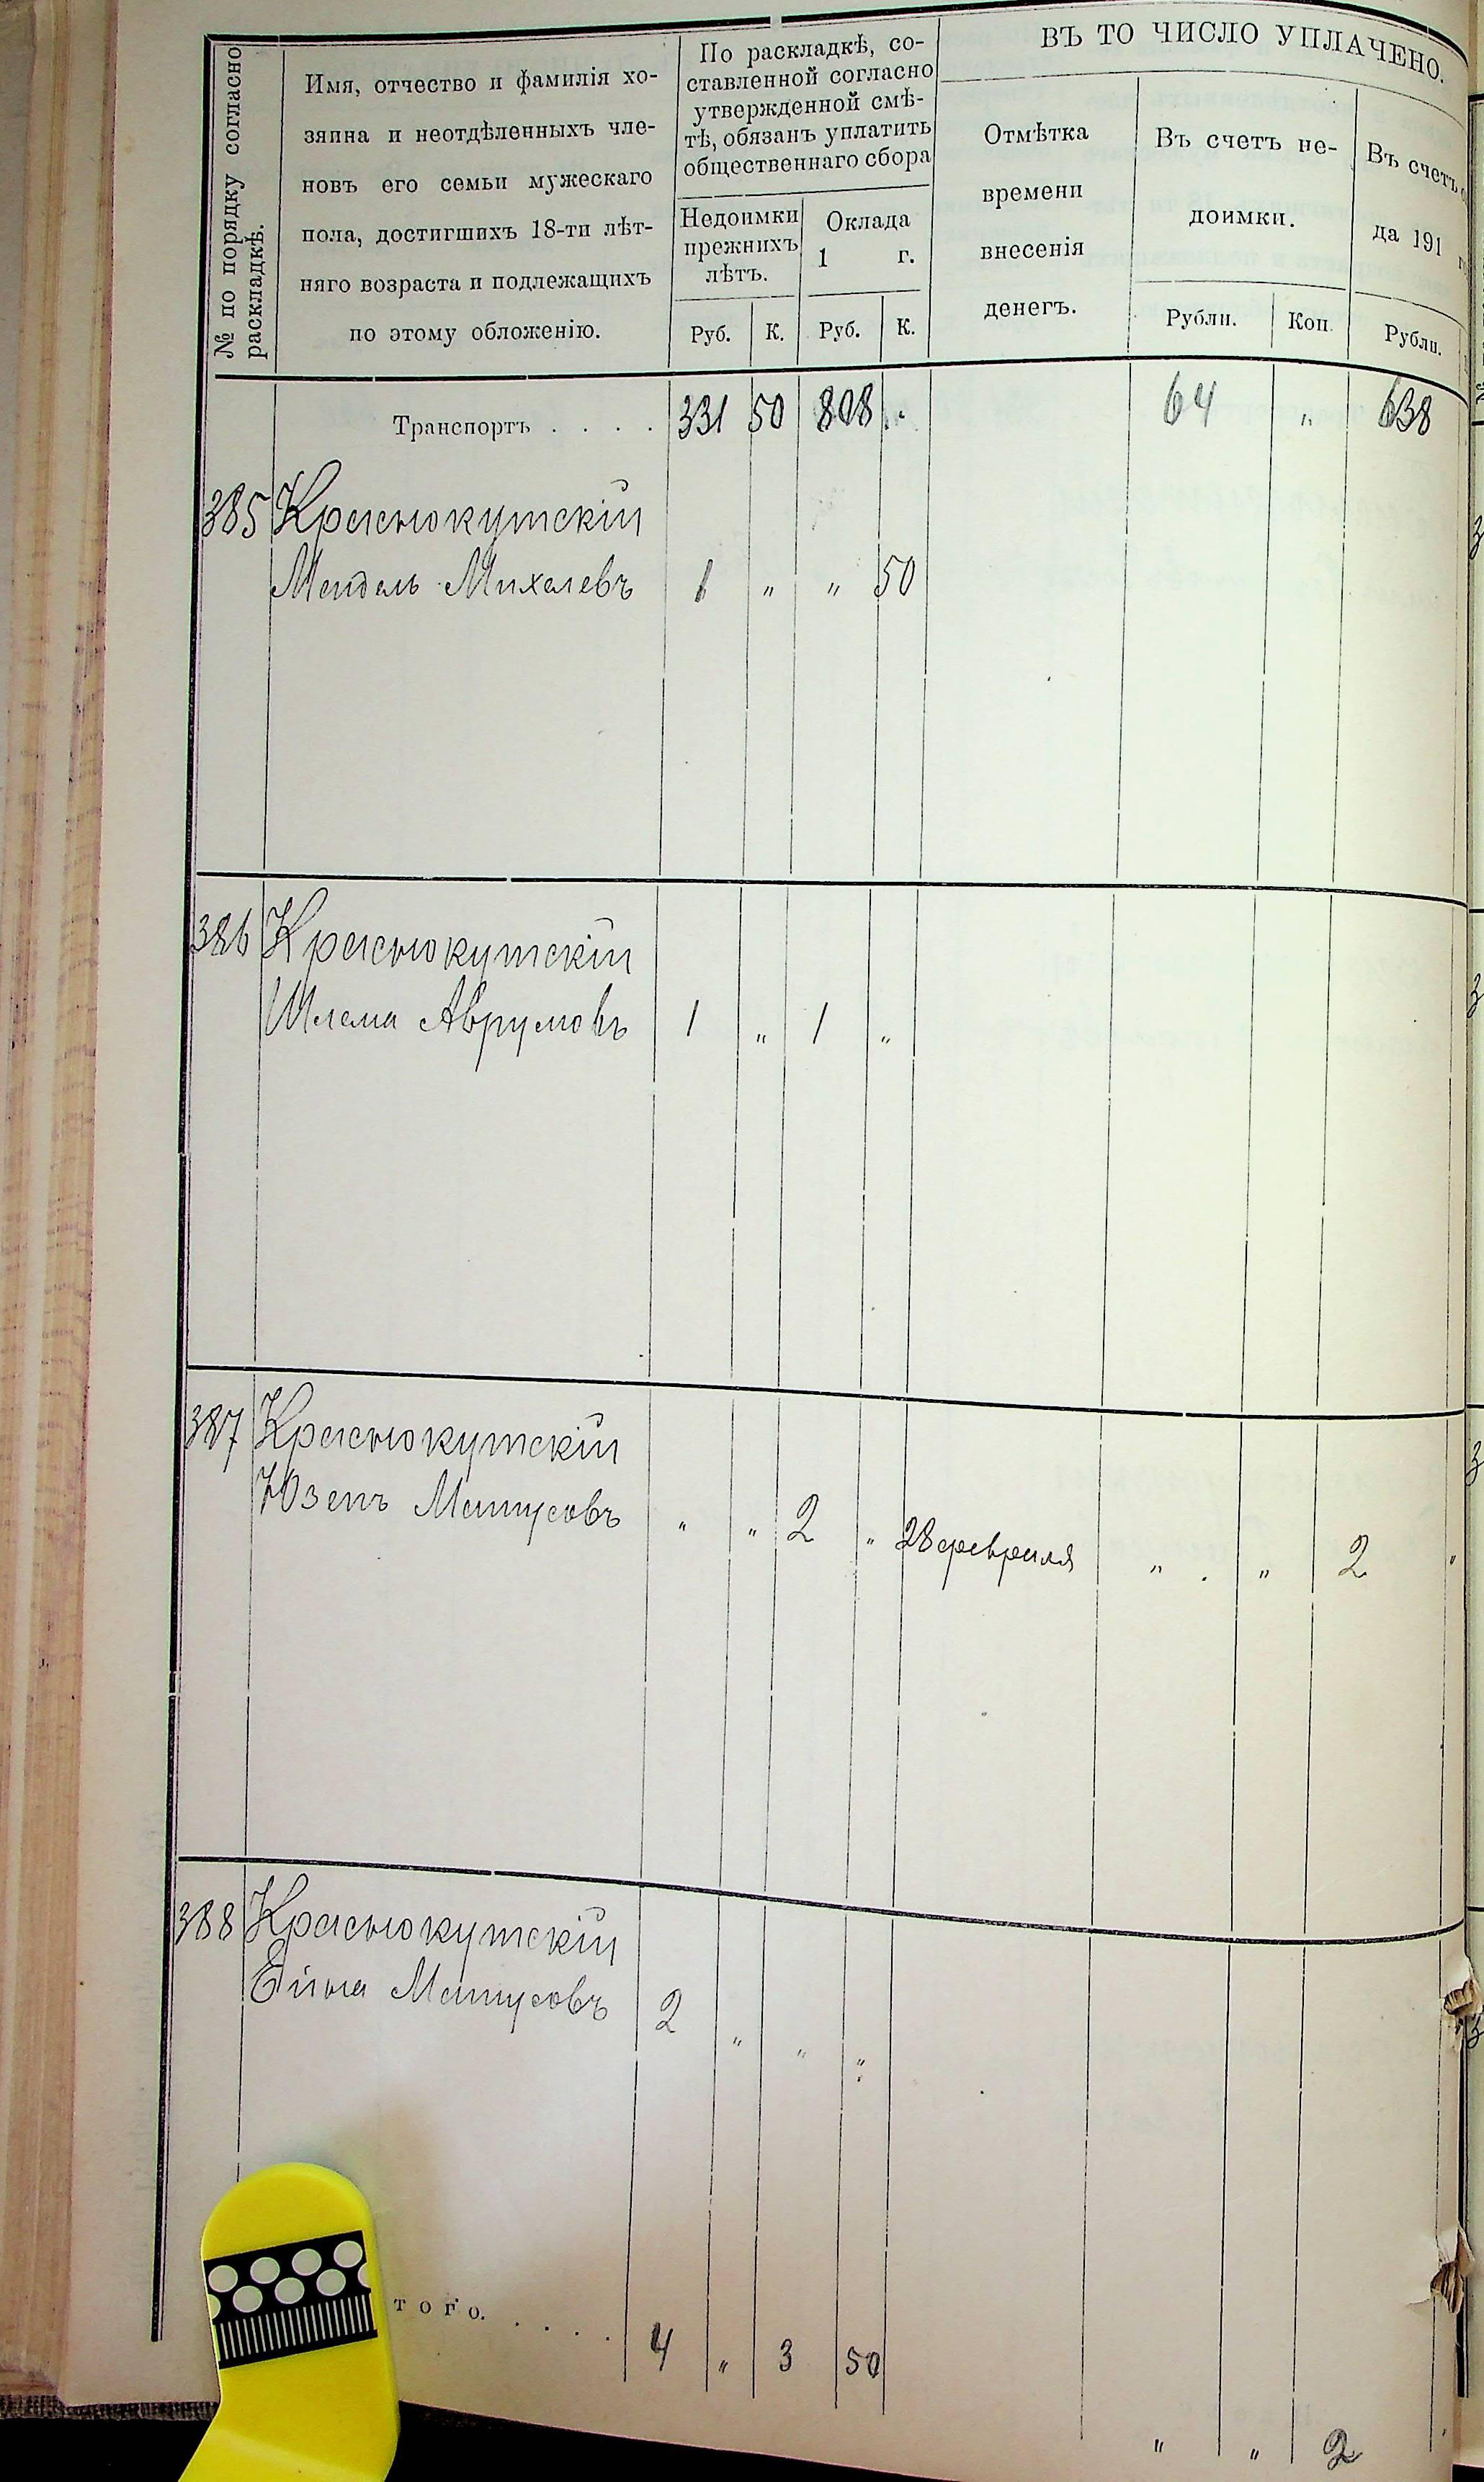 № по порядку согласно
раскладкѣ.
Имя, отчество и фамилія хо-
зяина и неотдѣленныхъ чле-
новъ его семьи мужескаго
пола, достигшихъ 18-ти лѣт-
няго возраста и подлежащихъ
по этому обложенію.
По раскладкѣ, со-
ставленной согласно
утвержденной смѣ-
тѣ, обязанъ уплатить
общественнаго сбора
Недоимки
прежнихъ
лѣтъ.
Оклада
1 г.
Руб. К. Руб. К.
ВЪ ТО ЧИСЛО УПЛАЧЕНО.
Отмѣтка
времени
внесенія
денегъ.
Въ счетъ не-
доимки.
Рубли. Коп.
Въ счетъ о
да 191 г
Рубли.
Транспортъ . . . . 331 50 808 " 64 " 638
385 Краснокутскій
Мендель Михелевъ 1 " " 50
386 Краснокутскій
Шлема Аврумовъ 1 " 1 "
387 Краснокутскій
Юзепъ Матусовъ " " 2 " 28 февраля " " 2 "
388 Краснокутскій
Ейна Матусовъ 2 " " "
того. . . . . 4 " 3 50
" " 2